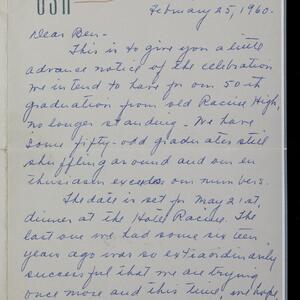 USA
February 25, 1960.
Dear Ben-
This is to give you a little
advance notice of the celebration
we intend to have for our 50-th
graduation from old Racine High,
no longer standing. We have
some fifty-odd graduates still
shuffling around and our en
thusiasm exceeds our numbers.
The date is set for May 21st,
dinner at the Hotel Racine. The
last one we had some six teen
years ago was so extraordinarily
successful that we are trying
once more and this time, we hope